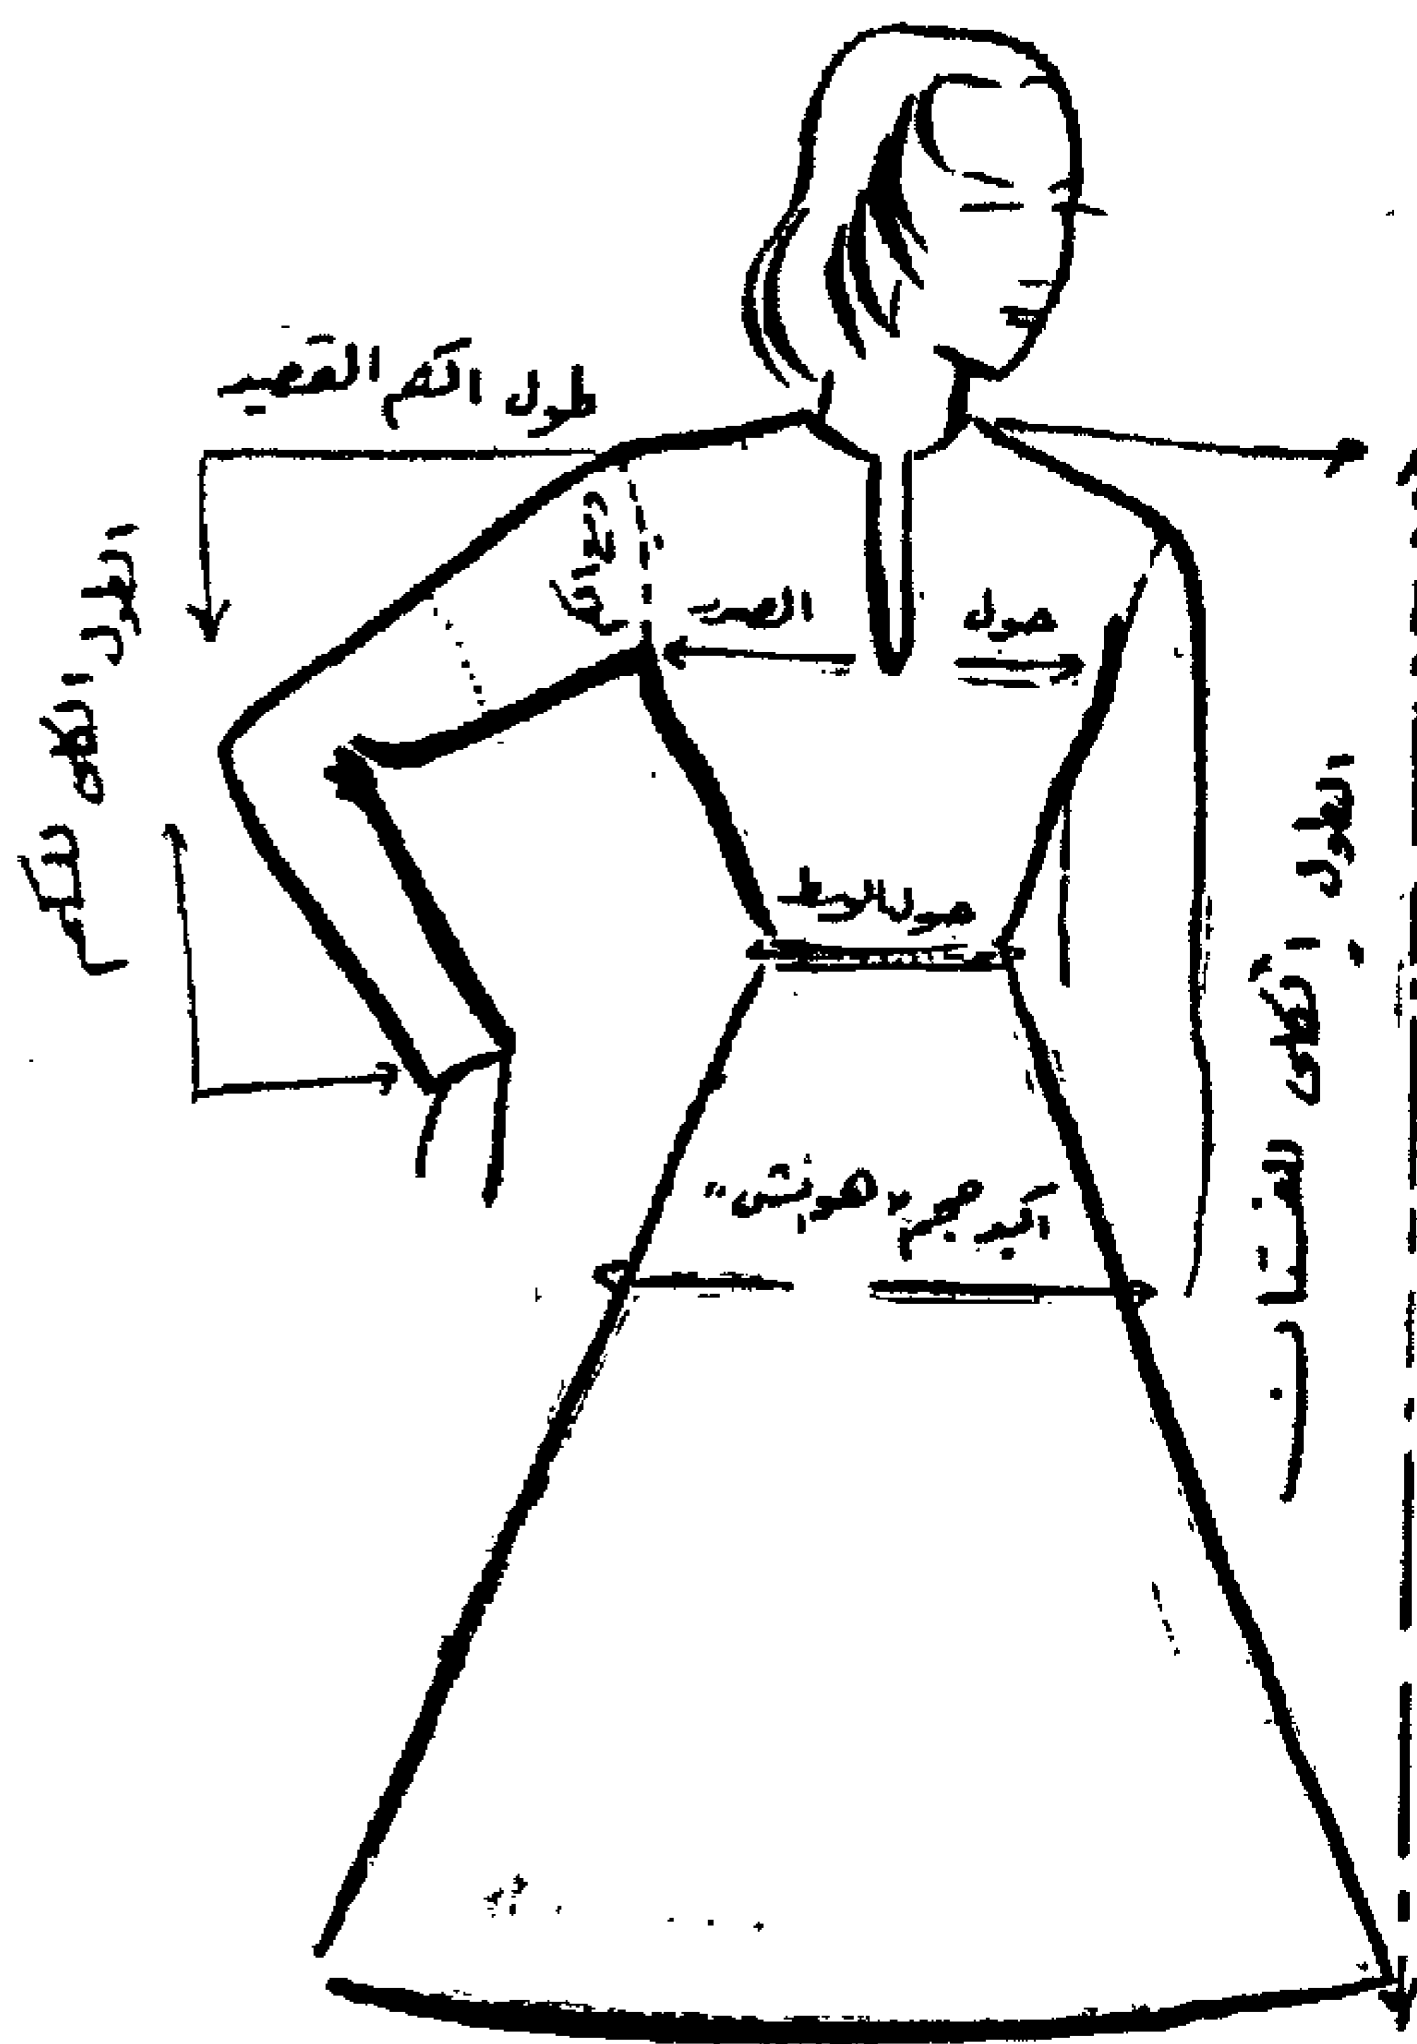 طول الكم القصير
الطول الكلى للكم
الكم
حول الصدر
حول الوسط
أكبر حجم "هونش"
الطول الكلى للفستان